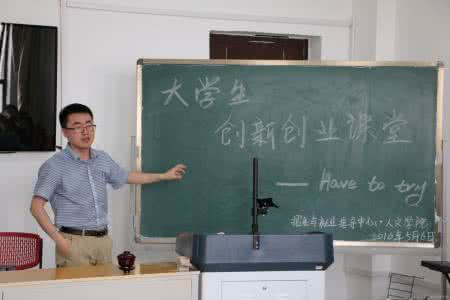 大学生
创新创业课堂
—— Have to try
招生与就业指导中心·人文学院
2016年5月6日